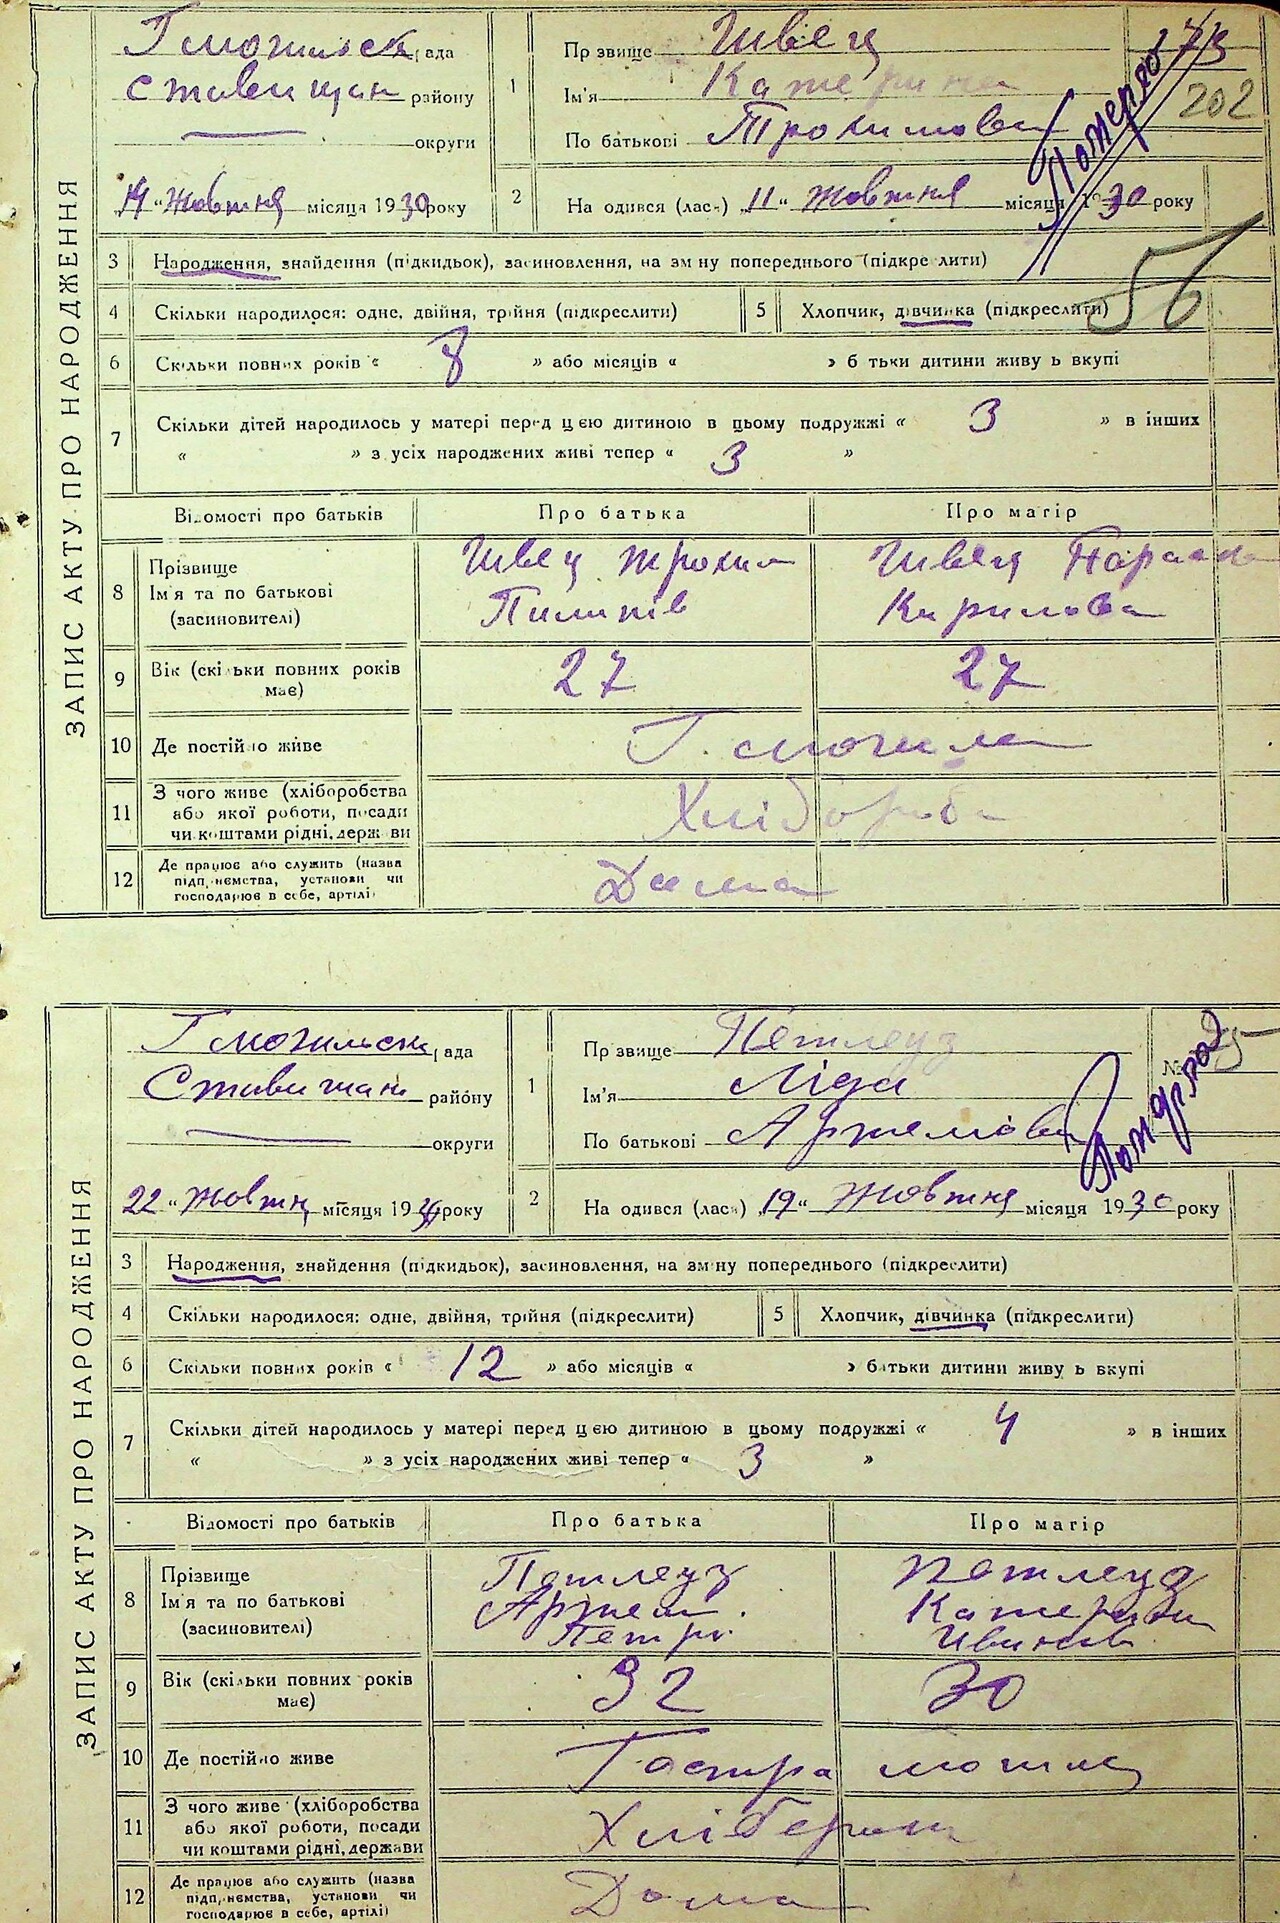 ЗАПИС АКТУ ПРО НАРОДЖЕННЯ
Г могильськ рада
Ставищан району
округи
"14" Жовтня місяця 1930 року
1 Прізвище Швец
Ім'я Катерина
По батькові Трохимова
73
202
Померло
2 Народився (лась) "11" жовтня місяця 1930 року
3 Народження, знайдення (підкидьок), засиновлення, на зміну попереднього (підкреслити)
56
4 Скільки народилося: одне, двійня, трійня (підкреслити)
5 Хлопчик, дівчинка (підкреслити)
6 Скільки повних років « 8 » або місяців « » батьки дитини живуть вкупі
7 Скільки дітей народилось у матері перед цею дитиною в цьому подружжі « 3 » в інших
« » з усіх народжених живі тепер « 3 »
Відомості про батьків Про батька Про матір
8 Прізвище Ім'я та по батькові (засиновителі)
Швец Трохим Пилипів
Швец Параска Кирилова
9 Вік (скільки повних років має) 27 27
10 Де постійно живе Г. могила
11 З чого живе (хліборобства або якої роботи, посади чи коштами рідні, держави
Хлібороби
12 Де працює або служить (назва підприємства, установи чи господарює в себе, артілі)
Дома
ЗАПИС АКТУ ПРО НАРОДЖЕННЯ
Г могильськ рада
Ставищан району
округи
22 "Жовтн місяця 1930 року
1 Прізвище Петлеуз
Ім'я Ліда
По батькові Артемова
№
Померло
2 Народився (лась) "19" жовтня місяця 1930 року
3 Народження, знайдення (підкидьок), засиновлення, на зміну попереднього (підкреслити)
4 Скільки народилося: одне, двійня, трійня (підкреслити)
5 Хлопчик, дівчинка (підкреслити)
6 Скільки повних років « 12 » або місяців « » батьки дитини живуть вкупі
7 Скільки дітей народилось у матері перед цею дитиною в цьому подружжі « 4 » в інших
« » з усіх народжених живі тепер « 3 »
Відомості про батьків Про батька Про матір
8 Прізвище Ім'я та по батькові (засиновителі)
Петлеуз Артем Петро.
Петлеуз Катерина Иванов
9 Вік (скільки повних років має) 32 30
10 Де постійно живе Гостра могила
11 З чого живе (хліборобства або якої роботи, посади чи коштами рідні, держави
12 Де працює або служить (назва підприємства, установи чи господарює в себе, артілі)
Дома